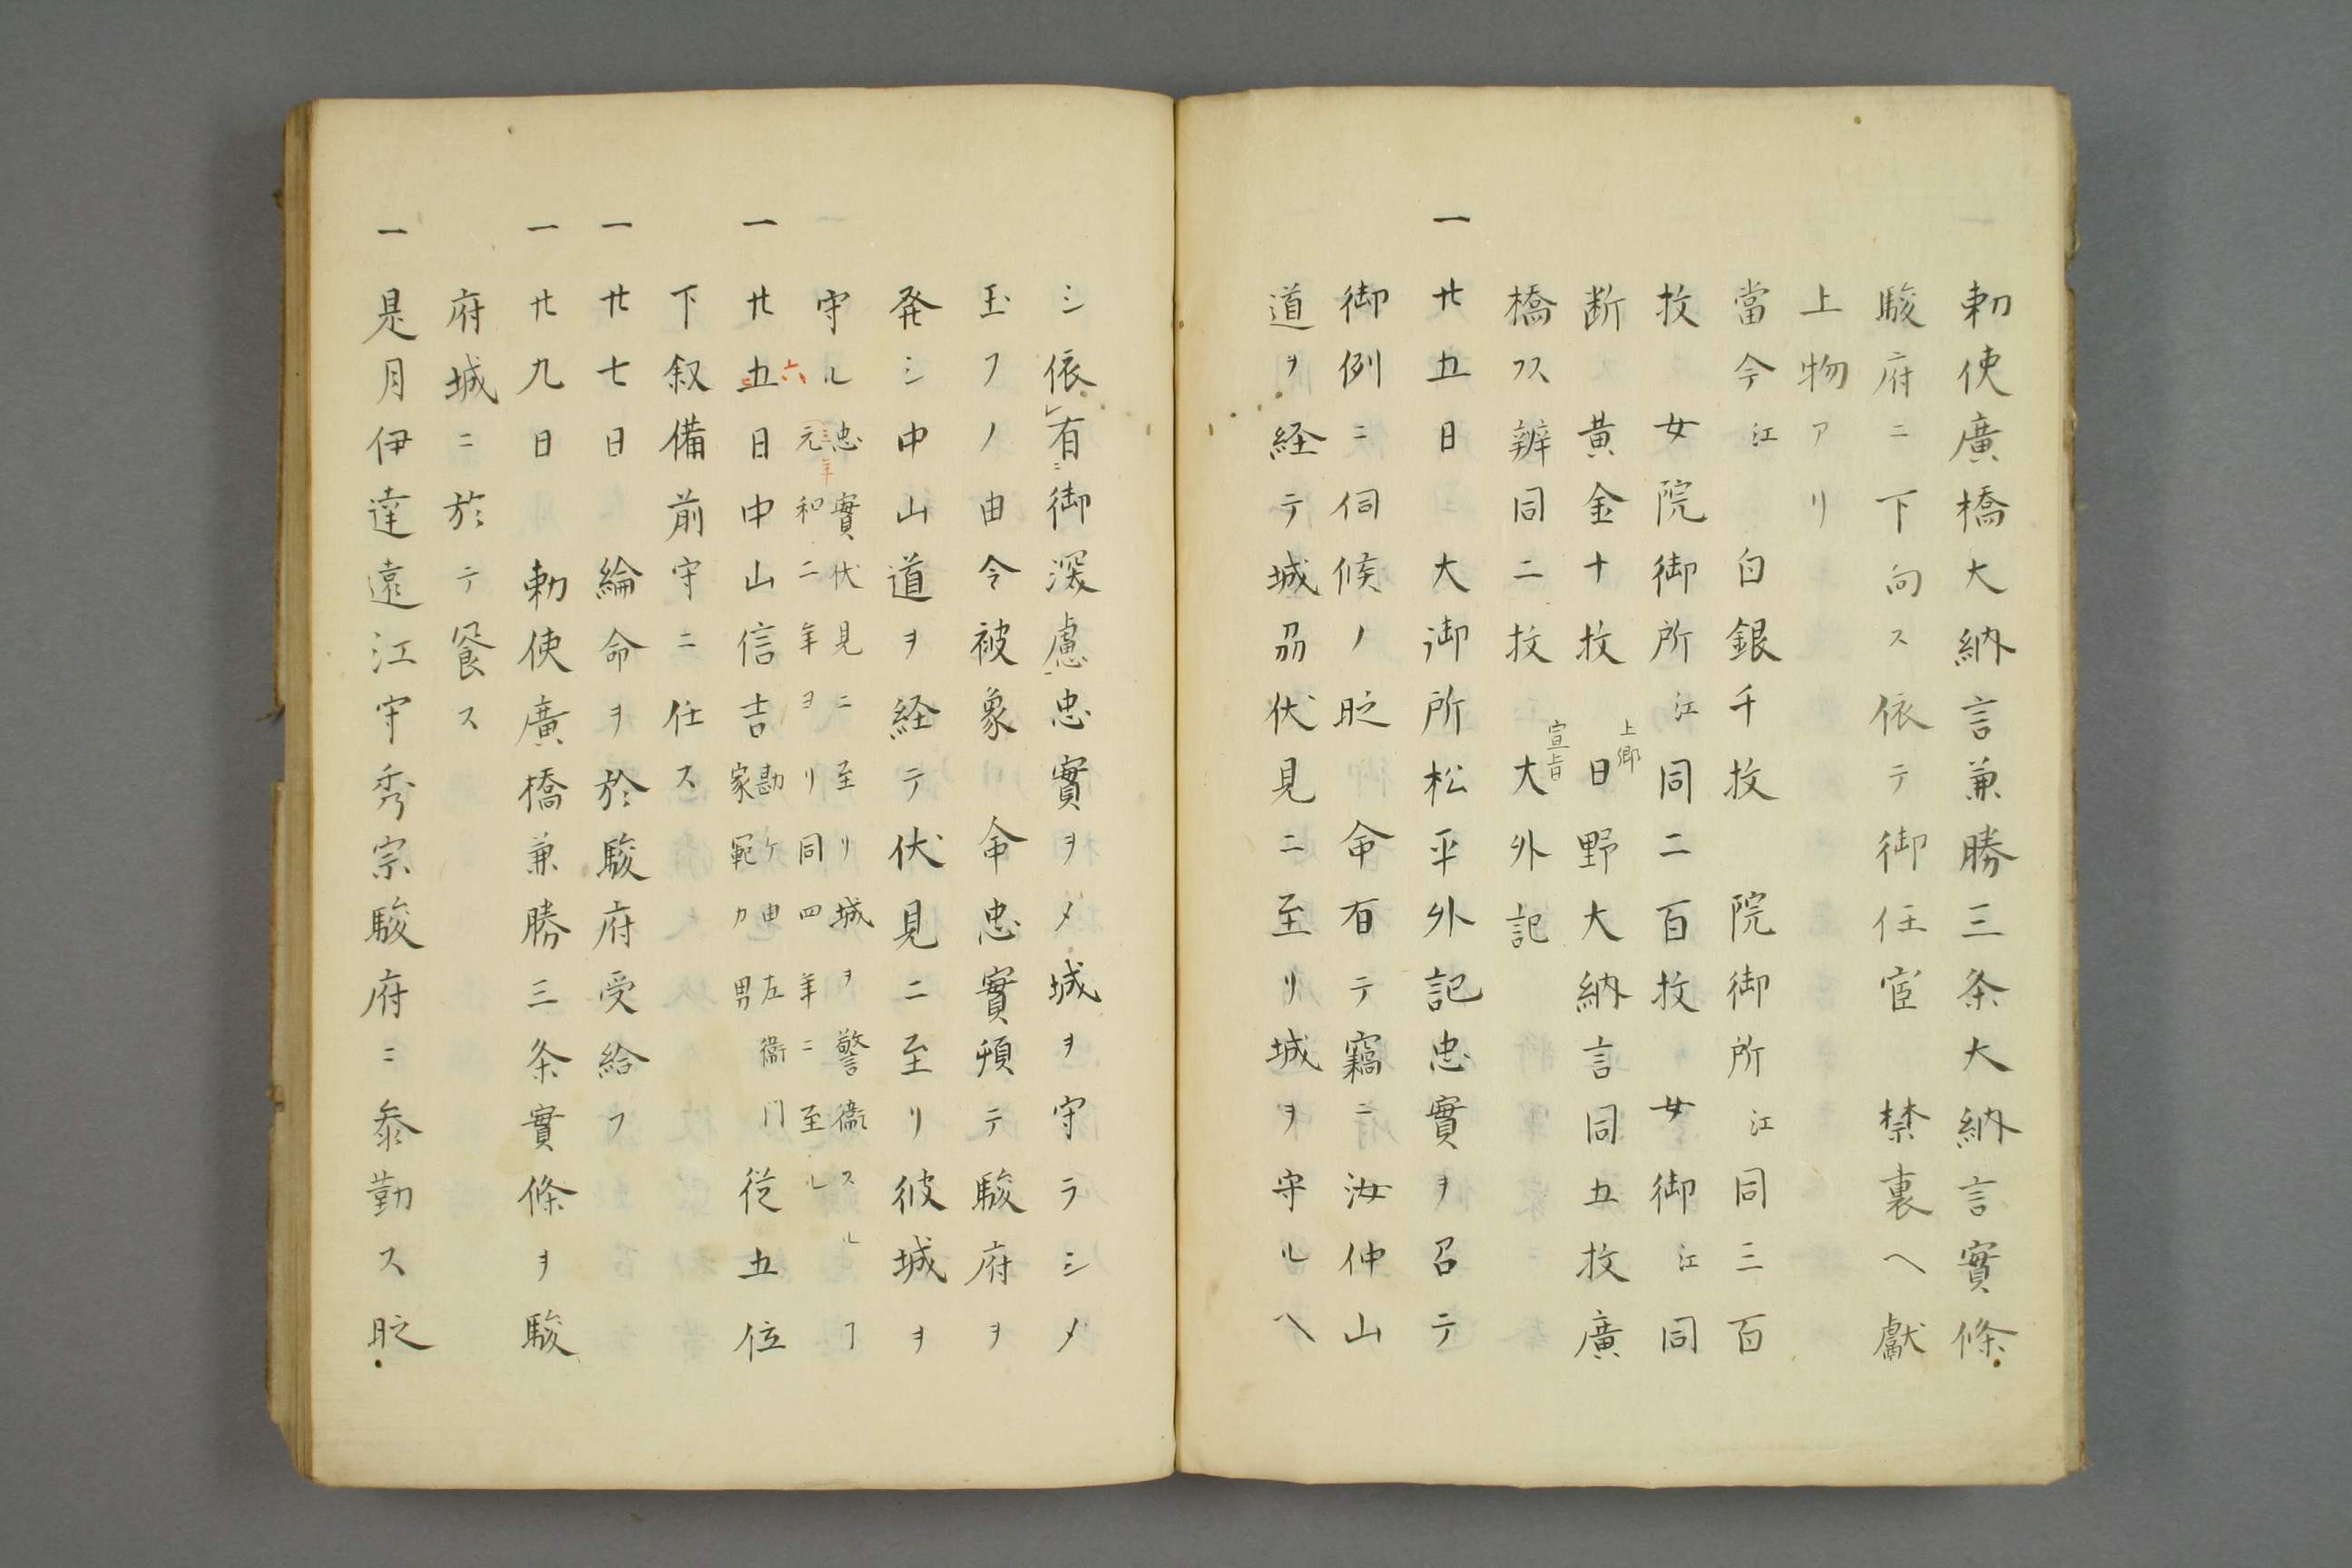 勅使廣橋大納言兼勝三条大納言實條
駿府ニ下向ス依テ御任宦　禁裏ヘ獻
上物アリ
當今江　白銀千枚　院御所江同三百
枚　女院御所江同二百枚　女御江同
断　黄金十枚　上卿日野大納言同五枚廣
橋　辨同二枚　宣旨大外記
一廿五日　大御所松平外記忠實ヲ召テ
御例ニ伺候ノ昵　命有テ竊ニ汝仲山
道ヲ経テ城刕伏見ニ至リ城ヲ守ルヘ
シ依有御深慮忠實ヲメ城ヲ守ラシメ
玉フノ由令被象　命忠實頓テ駿府ヲ
発シ中山道ヲ経テ伏見ニ至リ彼城ヲ
守ル忠實伏見ニ至リ城ヲ警衞スルヿ
元和二年ヨリ同四年ニ至ル
三年
六
一廿五日中山信吉勘ケ由左衞門
家範カ男従五位
下叙備前守ニ任ス
一廿七日　綸命ヲ於駿府受給フ
一廿九日　勅使廣橋兼勝三条實條ヲ駿
府城ニ於テ饗ス
一是月伊達遠江守秀宗駿府ニ叅勤ス昵